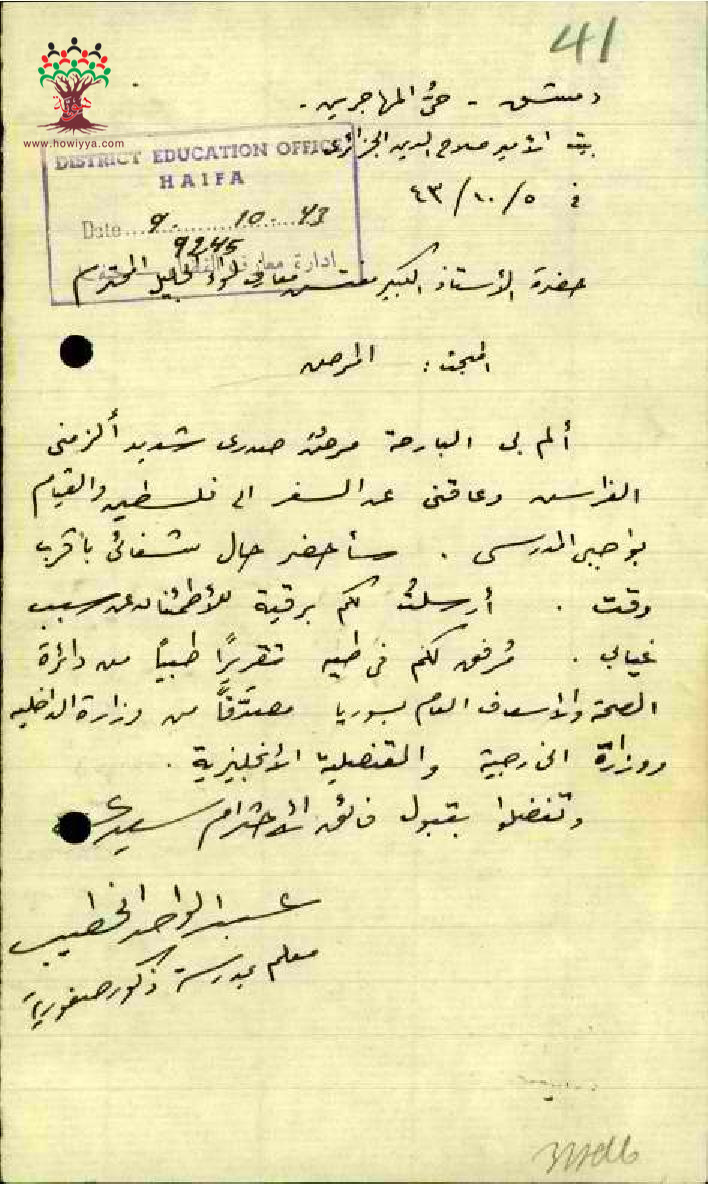 41
دمشق - حيُّ المهاجرين.
بيت الأمير صلاح الدين الجزائري
في ٥/١٠/٤٣
حوية
www.howiyya.com
DISTRICT EDUCATION OFFICE
HAIFA
Date 9. 10. 43
9245
ادارة معارف
حضرة الأستاذ الكبير مفتش معارف لواء الجليل المحترم
المبحث: المرض
ألم بي البارحة مرضٌ صدري شديد ألزمني
الفراش وعاقني عن السفر الى فلسطين والقيام
بواجبي المدرسي. سأحضر حال شفائي بأقرب
وقت. أرسلتُ لكم برقية للأطمئنان عن سبب
غيابي. مُرفق لكم في طيه تقريرًا طبيًا من دائرة
الصحة والاسعاف العام بسوريا مصدَّقًا من وزارة الداخليه
ووزارة الخارجية والقنصلية الأنجليزية.
وتفضلوا بقبول فائق الأحترام سيدي
عبد الواحد الخطيب
معلم بمدرسة ذكور صفورية